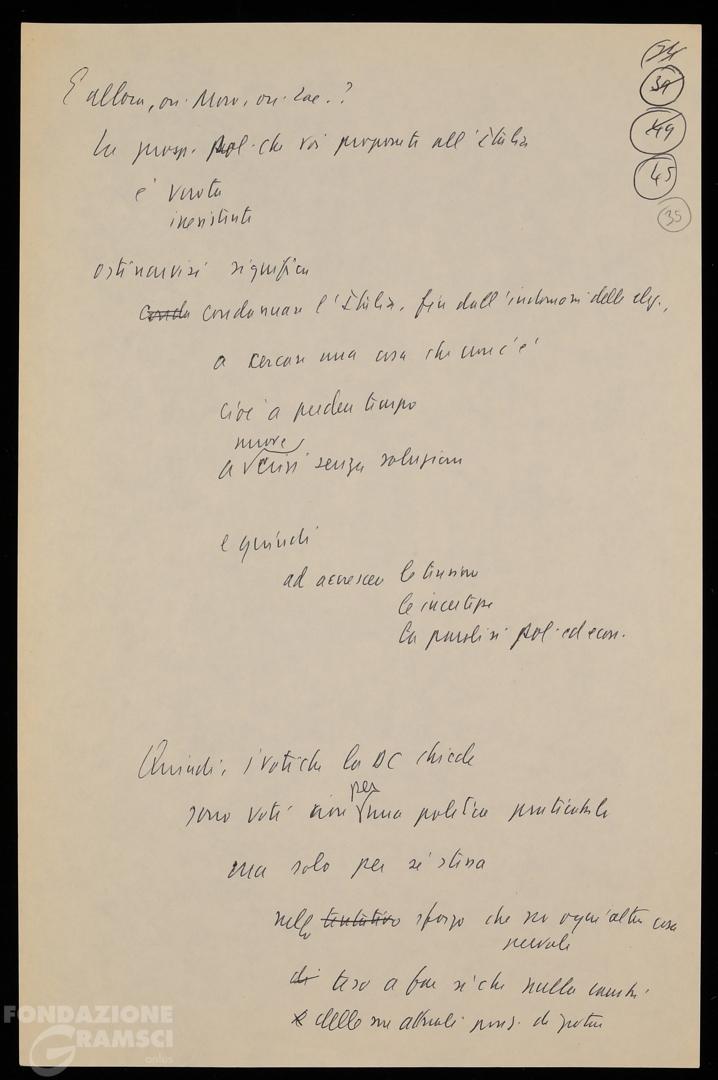 E allora, on. Moro, on. Zac.?
35
39
49
45
35
La prosp. pol. che voi proponete all'Italia
è vuota
inesistente
ostinarvisi significa
cond condannare l'Italia, fin dall'indomani delle elez.,
a cercare una cosa che non c'è
cioè a perder tempo
nuove
a crisi senza soluzioni
e quindi
ad accrescere le tensioni
le incertezze
la paralisi pol. ed econ.
Quindi, i voti che la DC chiede
per
sono voti non una politica praticabile
ma solo per se stessa
nello tentativo sforzo che su ogni altra cosa
prevale
di teso a far sì che nulla cambi
delle sue attuali posiz. di potere
FONDAZIONE
GRAMSCI
onlus